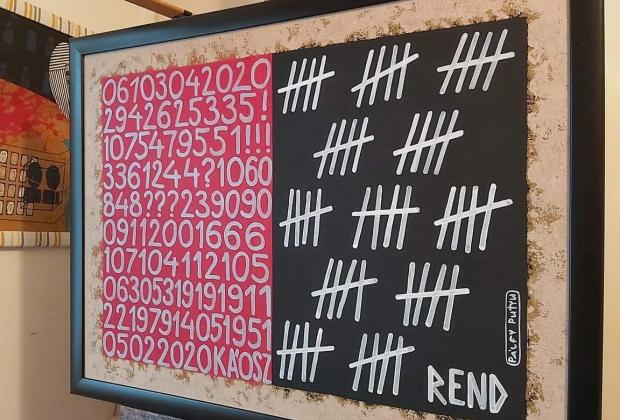 06103042020
2942625335!
1075479551!!!
33612244?1060
848???239090
09112001666
107104112105
06305319191911
22197914051951
05022020KÁOSZ
REND
PALFY PUTYU